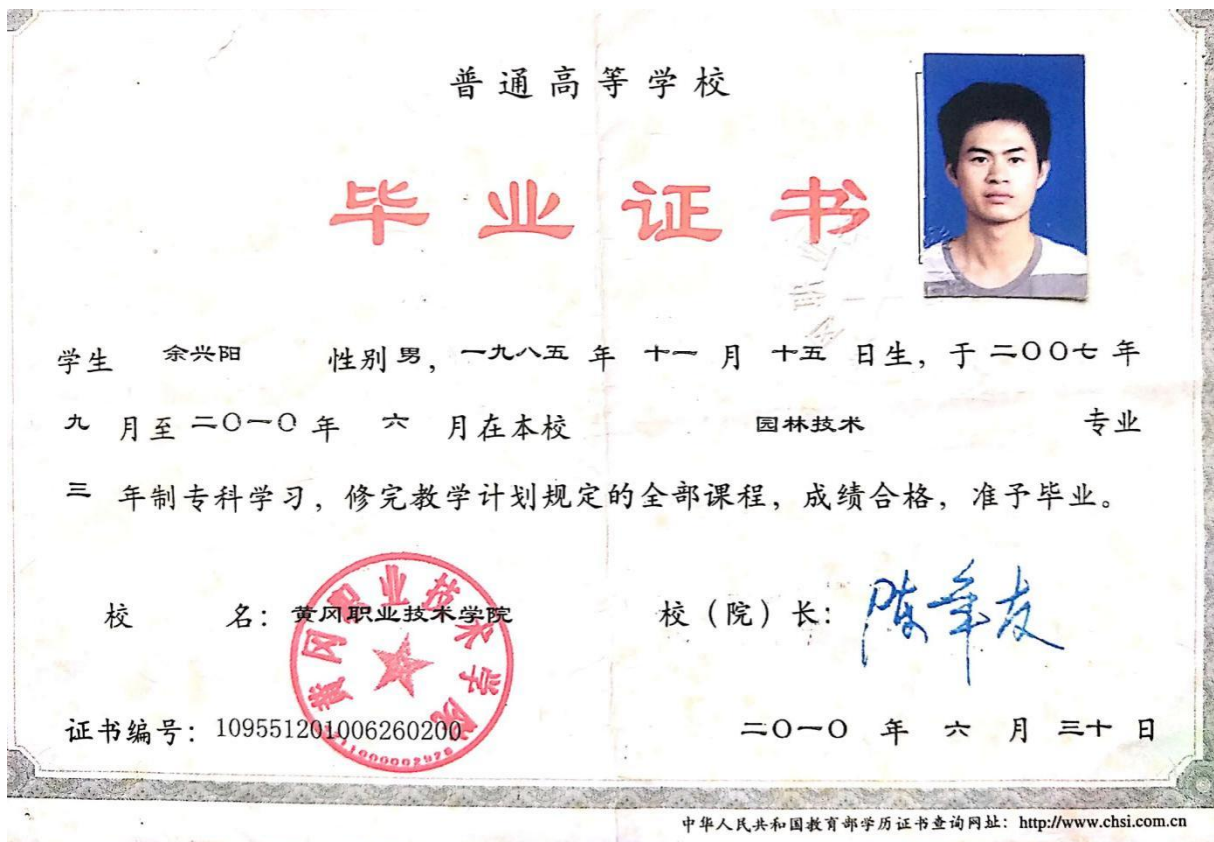 普通高等学校
毕业证书
学生 余兴阳 性别 男，一九八五 年 十一 月 十五 日生，于 二〇〇七 年
九 月至 二〇一〇 年 六 月在本校 园林技术 专业
三 年制专科学习，修完教学计划规定的全部课程，成绩合格，准予毕业。
校 名：黄冈职业技术学院 校（院）长：
黄冈职业技术学院
证书编号：109551201006260200 二〇一〇 年 六 月 三十 日
中华人民共和国教育部学历证书查询网址：http://www.chsi.com.cn